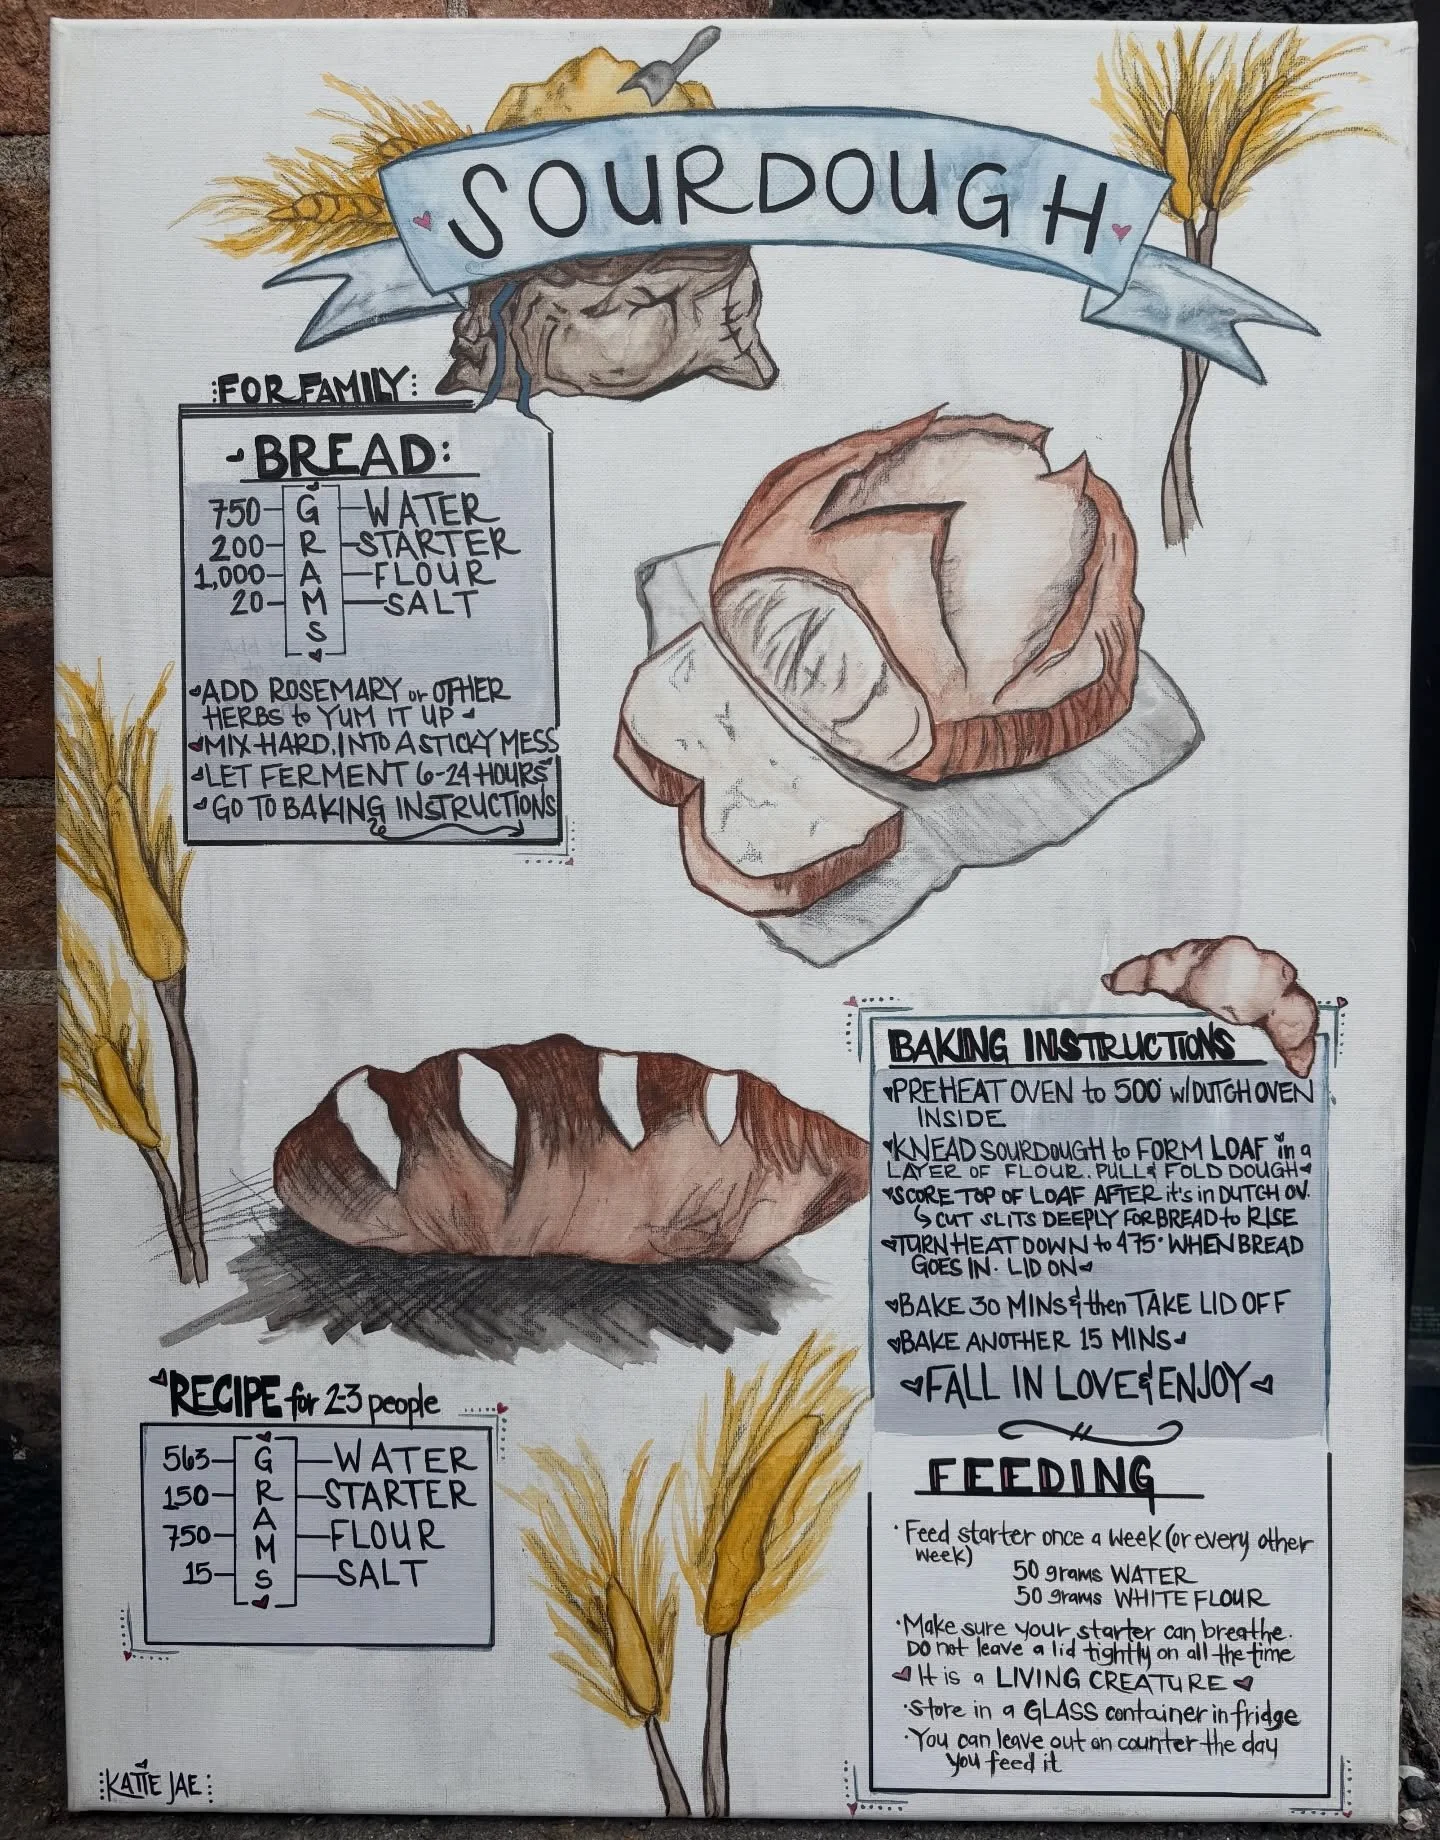 SOURDOUGH
FOR FAMILY
BREAD:
GRAMS
750 WATER
200 STARTER
1,000 FLOUR
20 SALT
ADD ROSEMARY or OTHER
HERBS to YUM IT UP
MIX HARD. INTO A STICKY MESS
LET FERMENT 6-24 HOURS
GO TO BAKING INSTRUCTIONS
BAKING INSTRUCTIONS
PREHEAT OVEN to 500° w/DUTCH OVEN
INSIDE
KNEAD SOURDOUGH to FORM LOAF in a
LAYER OF FLOUR. PULL & FOLD DOUGH
SCORE TOP OF LOAF AFTER it's in DUTCH OV.
CUT SLITS DEEPLY FOR BREAD to RISE
TURN HEAT DOWN to 475° WHEN BREAD
GOES IN. LID ON
BAKE 30 MINS & then TAKE LID OFF
BAKE ANOTHER 15 MINS
FALL IN LOVE & ENJOY
RECIPE for 2-3 people
GRAMS
563 WATER
150 STARTER
750 FLOUR
15 SALT
FEEDING
· Feed starter once a week (or every other
week)
50 grams WATER
50 grams WHITE FLOUR
· Make sure your starter can breathe.
DO not leave a lid tightly on all the time
It is a LIVING CREATURE
· Store in a GLASS container in fridge
· You can leave out on counter the day
you feed it
KATIE JAE